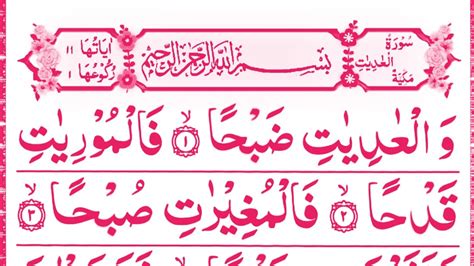 سُوْرَةُ الْعٰدِيٰتِ مَكِّيَّةٌ
بِسْمِ اللّٰهِ الرَّحْمٰنِ الرَّحِيْمِ
اٰيَاتُهَا ١١ رُكُوْعُهَا ١
وَالْعٰدِيٰتِ ضَبْحًا ۙ﴿١﴾ فَالْمُوْرِيٰتِ
قَدْحًا ۙ﴿٢﴾ فَالْمُغِيْرٰتِ صُبْحًا ۙ﴿٣﴾